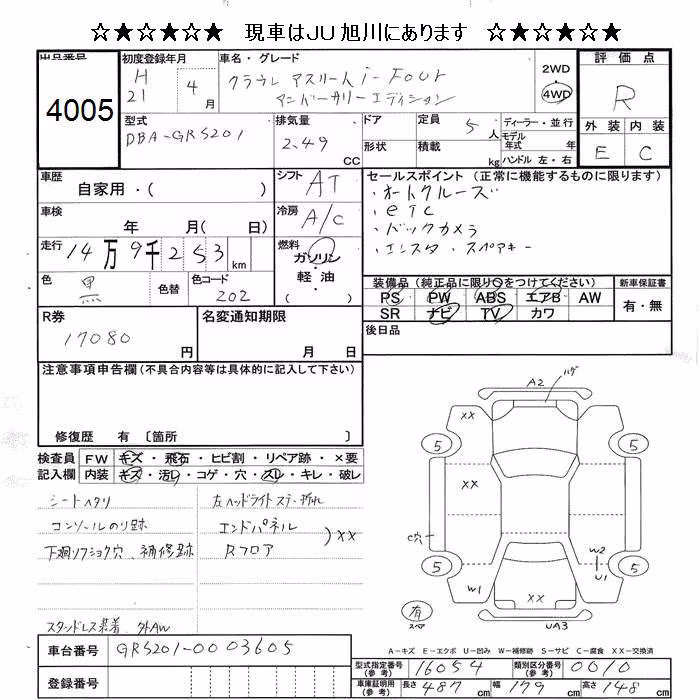 ☆★☆★☆★ 現車はJU旭川にあります ☆★☆★☆★
出品番号
4005
初度登録年月
H21 年 4月
車名・グレード
クラウン アスリート i-Four
アニバーサリーエディション
2WD
4WD
評価点
R
外装 内装
E C
型式
DBA-GRS201
排気量
2.49
CC
ドア
形状
定員
5人
積載
kg
ディーラー・並行
モデル
年式 年
ハンドル 左・右
車歴
自家用・( )
シフト
AT
車検
年 月( 日)
冷房
A/C
走行
14万9千253km
燃料
ガソリン・
軽油
色
黒
色替
色コード
202
セールスポイント (正常に機能するものに限ります)
・オートクルーズ
・ETC
・バックカメラ
・エンスタ・スペアキー
装備品 (純正品に限り○をつけてください)
PS PW ABS エアB AW
SR ナビ TV カワ
新車保証書
有・無
後日品
R券
17080
円
名変通知期限
月 日
注意事項申告欄 (不具合内容等は具体的に記入して下さい)
修復歴 有 〔箇所 〕
検査員
記入欄
FW キズ・飛石・ヒビ割・リペア跡・×要
内装 キズ・汚レ・コゲ・穴・スレ・キレ・破レ
シートヘタリ
コンソールのり跡
下廻リフショク穴、補修跡
スタンドレス装着 外AW
左ヘッドライトステー折れ
エンドパネル
Rフロア
)××
A2
ハゲ
××
5
5
××
C穴
W2
U1
5
5
W1
××
有
スペア
UA3
A-キズ E-エクボ U-凹み W-補修跡 S-サビ C-腐食 XX-交換済
車台番号
GRS201-0003605
登録番号
型式指定番号
(参考)
16054
類別区分番号
(参考)
0010
車庫証明用
(参考)
長さ 487cm 幅 179cm 高さ 148cm